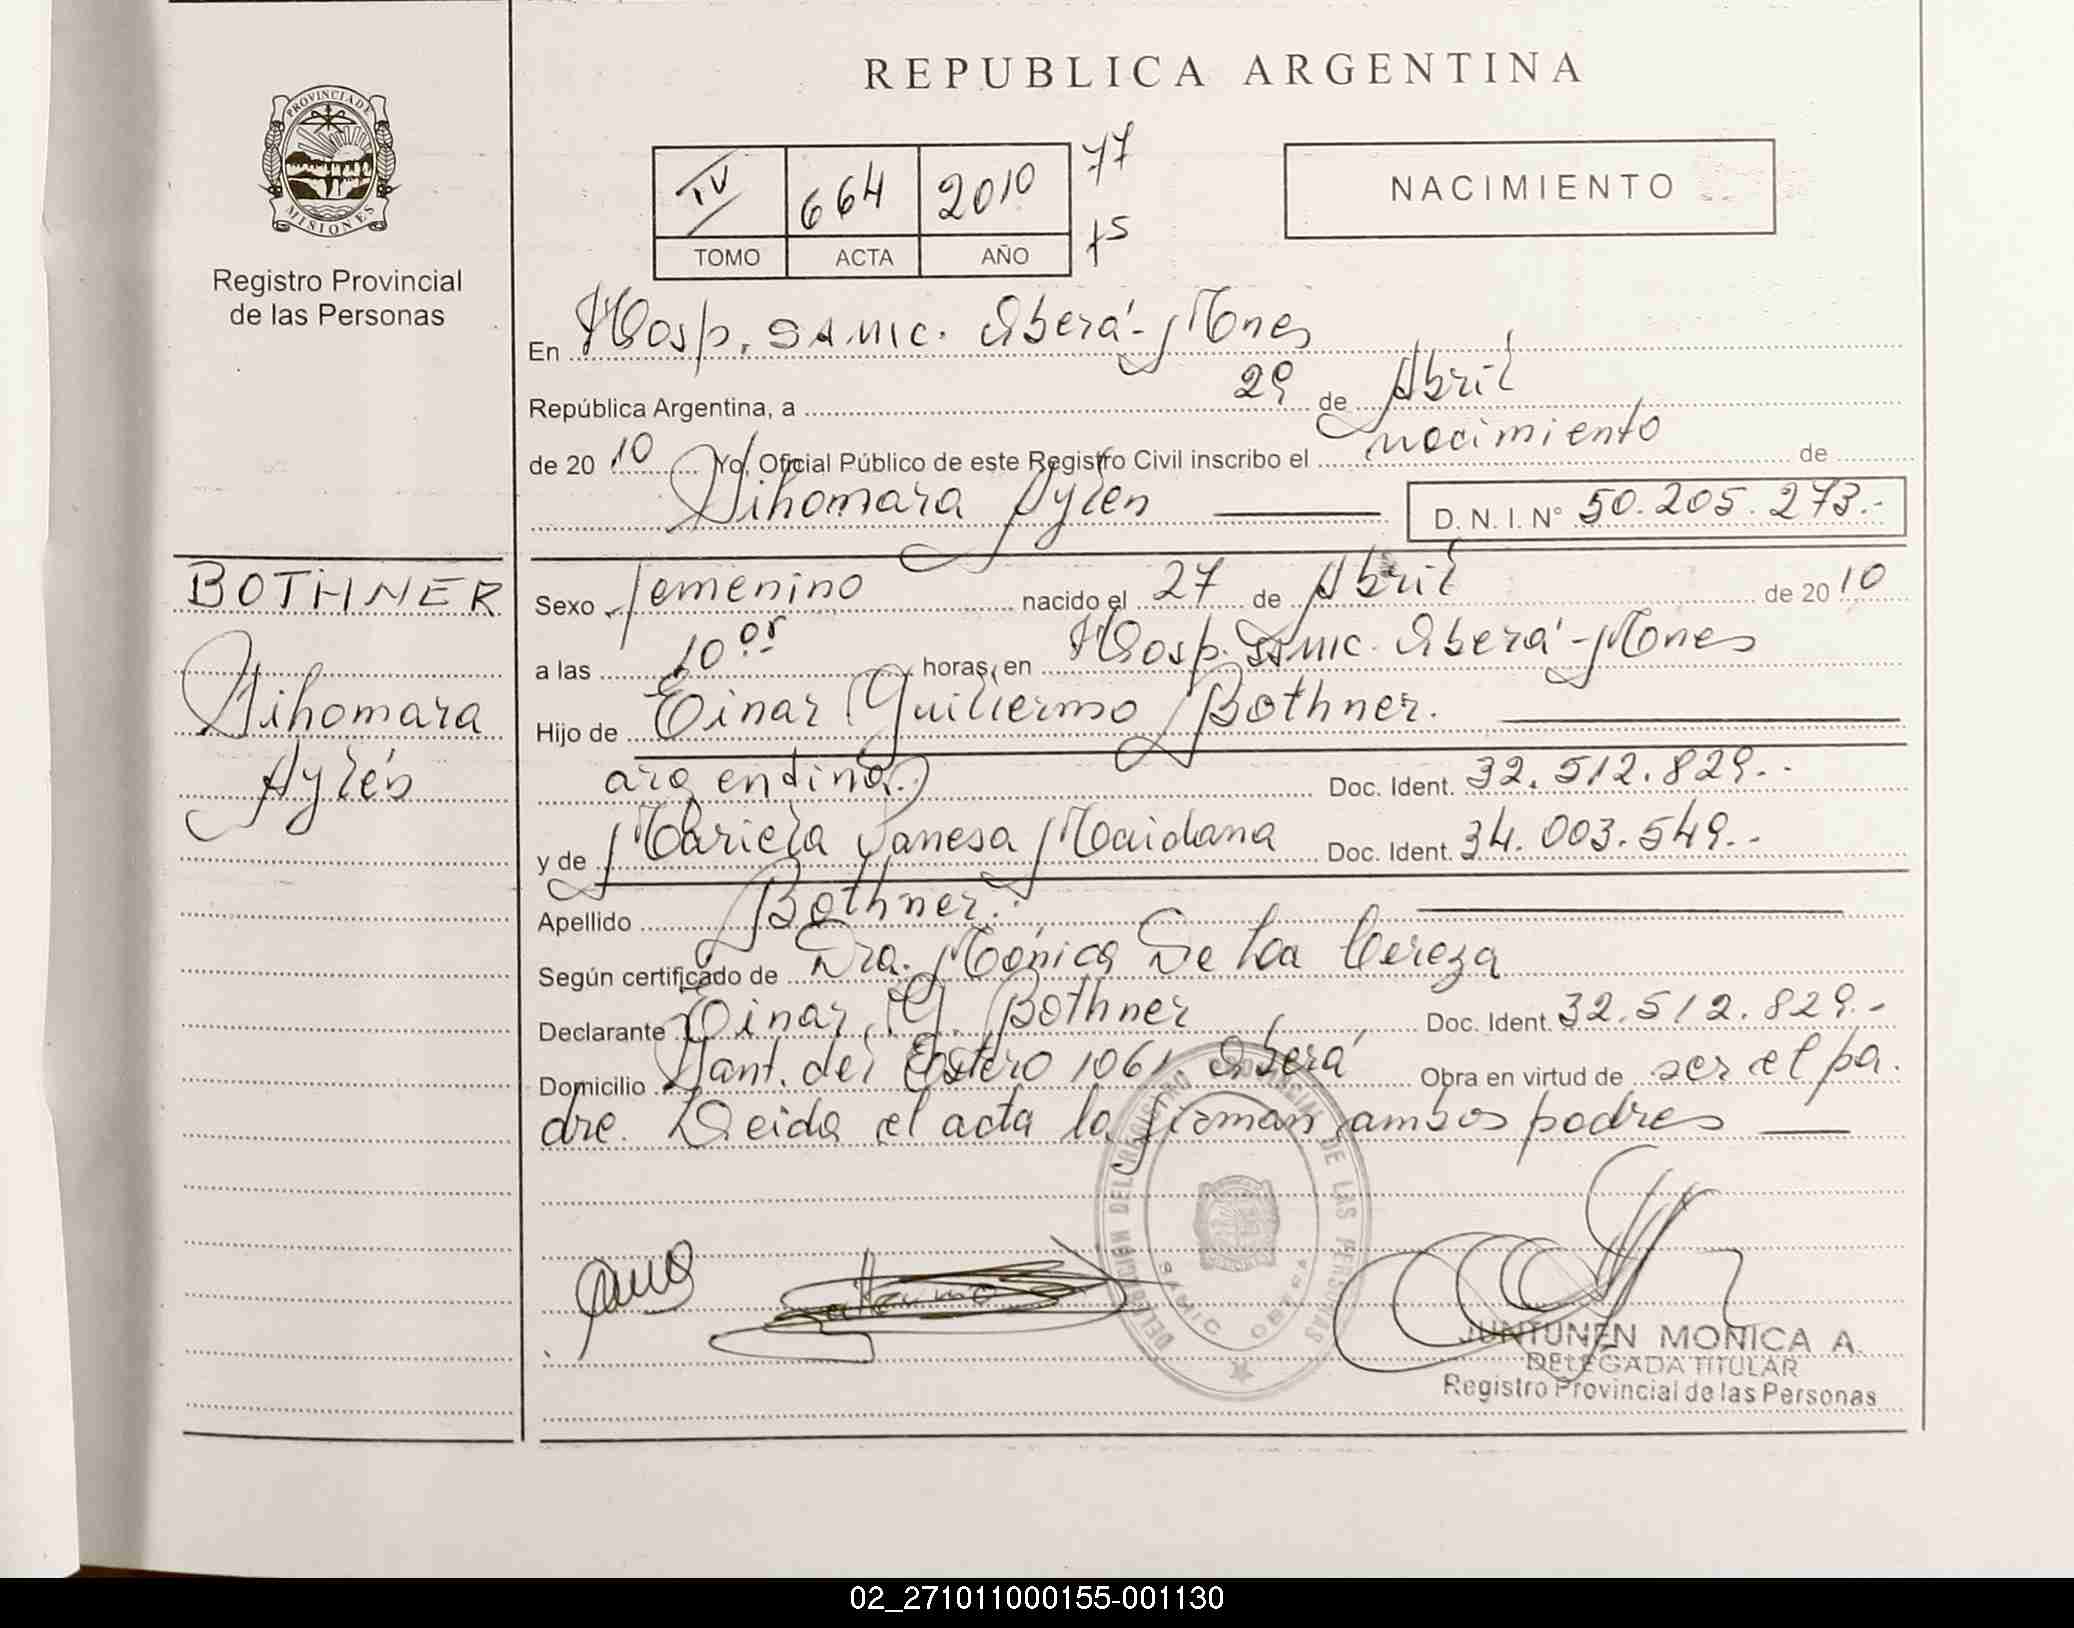 REPUBLICA ARGENTINA
PROVINCIA DE
MISIONES
Registro Provincial
de las Personas
IV 664 2010 77
TOMO ACTA AÑO 75
NACIMIENTO
En Hosp. SAMIC. Oberá - Mnes
República Argentina, a 29 de Abril
de 20 10 Yo, Oficial Público de este Registro Civil inscribo el nacimiento de
Sihomara Aylen D. N. I. N° 50.205.273.-
BOTHNER
Sihomara
Aylén
Sexo femenino nacido el 27 de Abril de 20 10
a las 10 horas, en Hosp. SAMIC. Oberá - Mones
Hijo de Einar Guillermo Bothner.
argentino. Doc. Ident. 32.512.829.-
y de Mariela Vanesa Maidana Doc. Ident. 34.003.549.-
Apellido Bothner.
Según certificado de Dra. Mónica De La Cereza
Declarante Einar G. Bothner Doc. Ident. 32.512.829.-
Domicilio Sant. del Estero 1061 Oberá Obra en virtud de ser el pa.
dre. Leida el acta la firman ambos padres
DELEGACIÓN DEL REGISTRO PROVINCIAL DE LAS PERSONAS
SAMIC OBERA
JUNTUNEN MONICA A.
DELEGADA TITULAR
Registro Provincial de las Personas
02_271011000155-001130